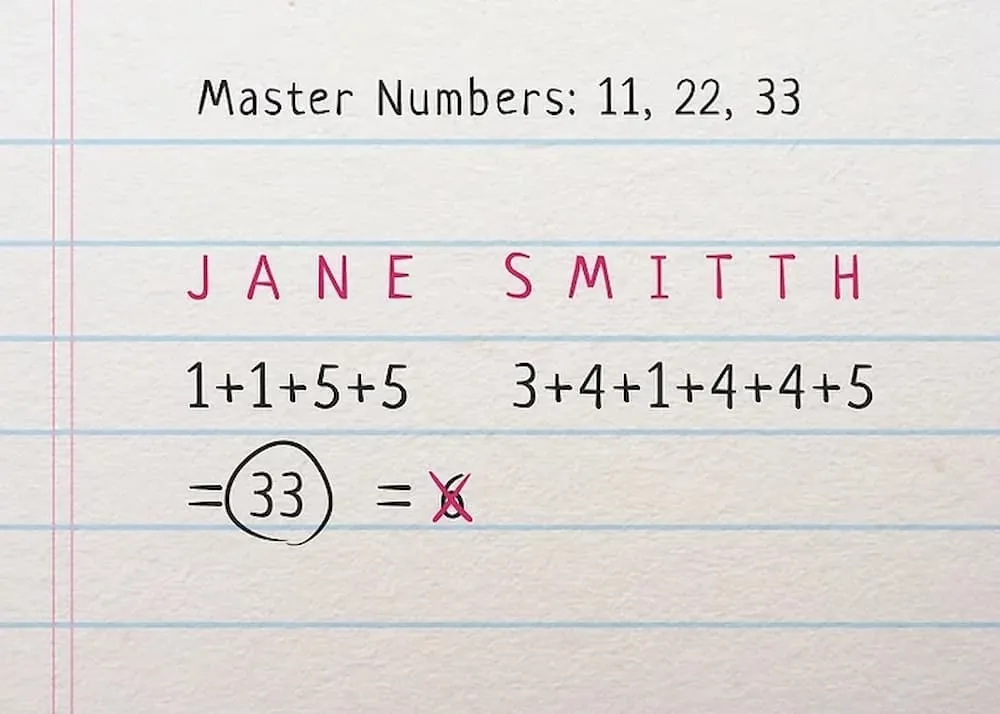 Master Numbers: 11, 22, 33
J A N E S M I T T H
1+1+5+5 3+4+1+4+4+5
=33 = 6